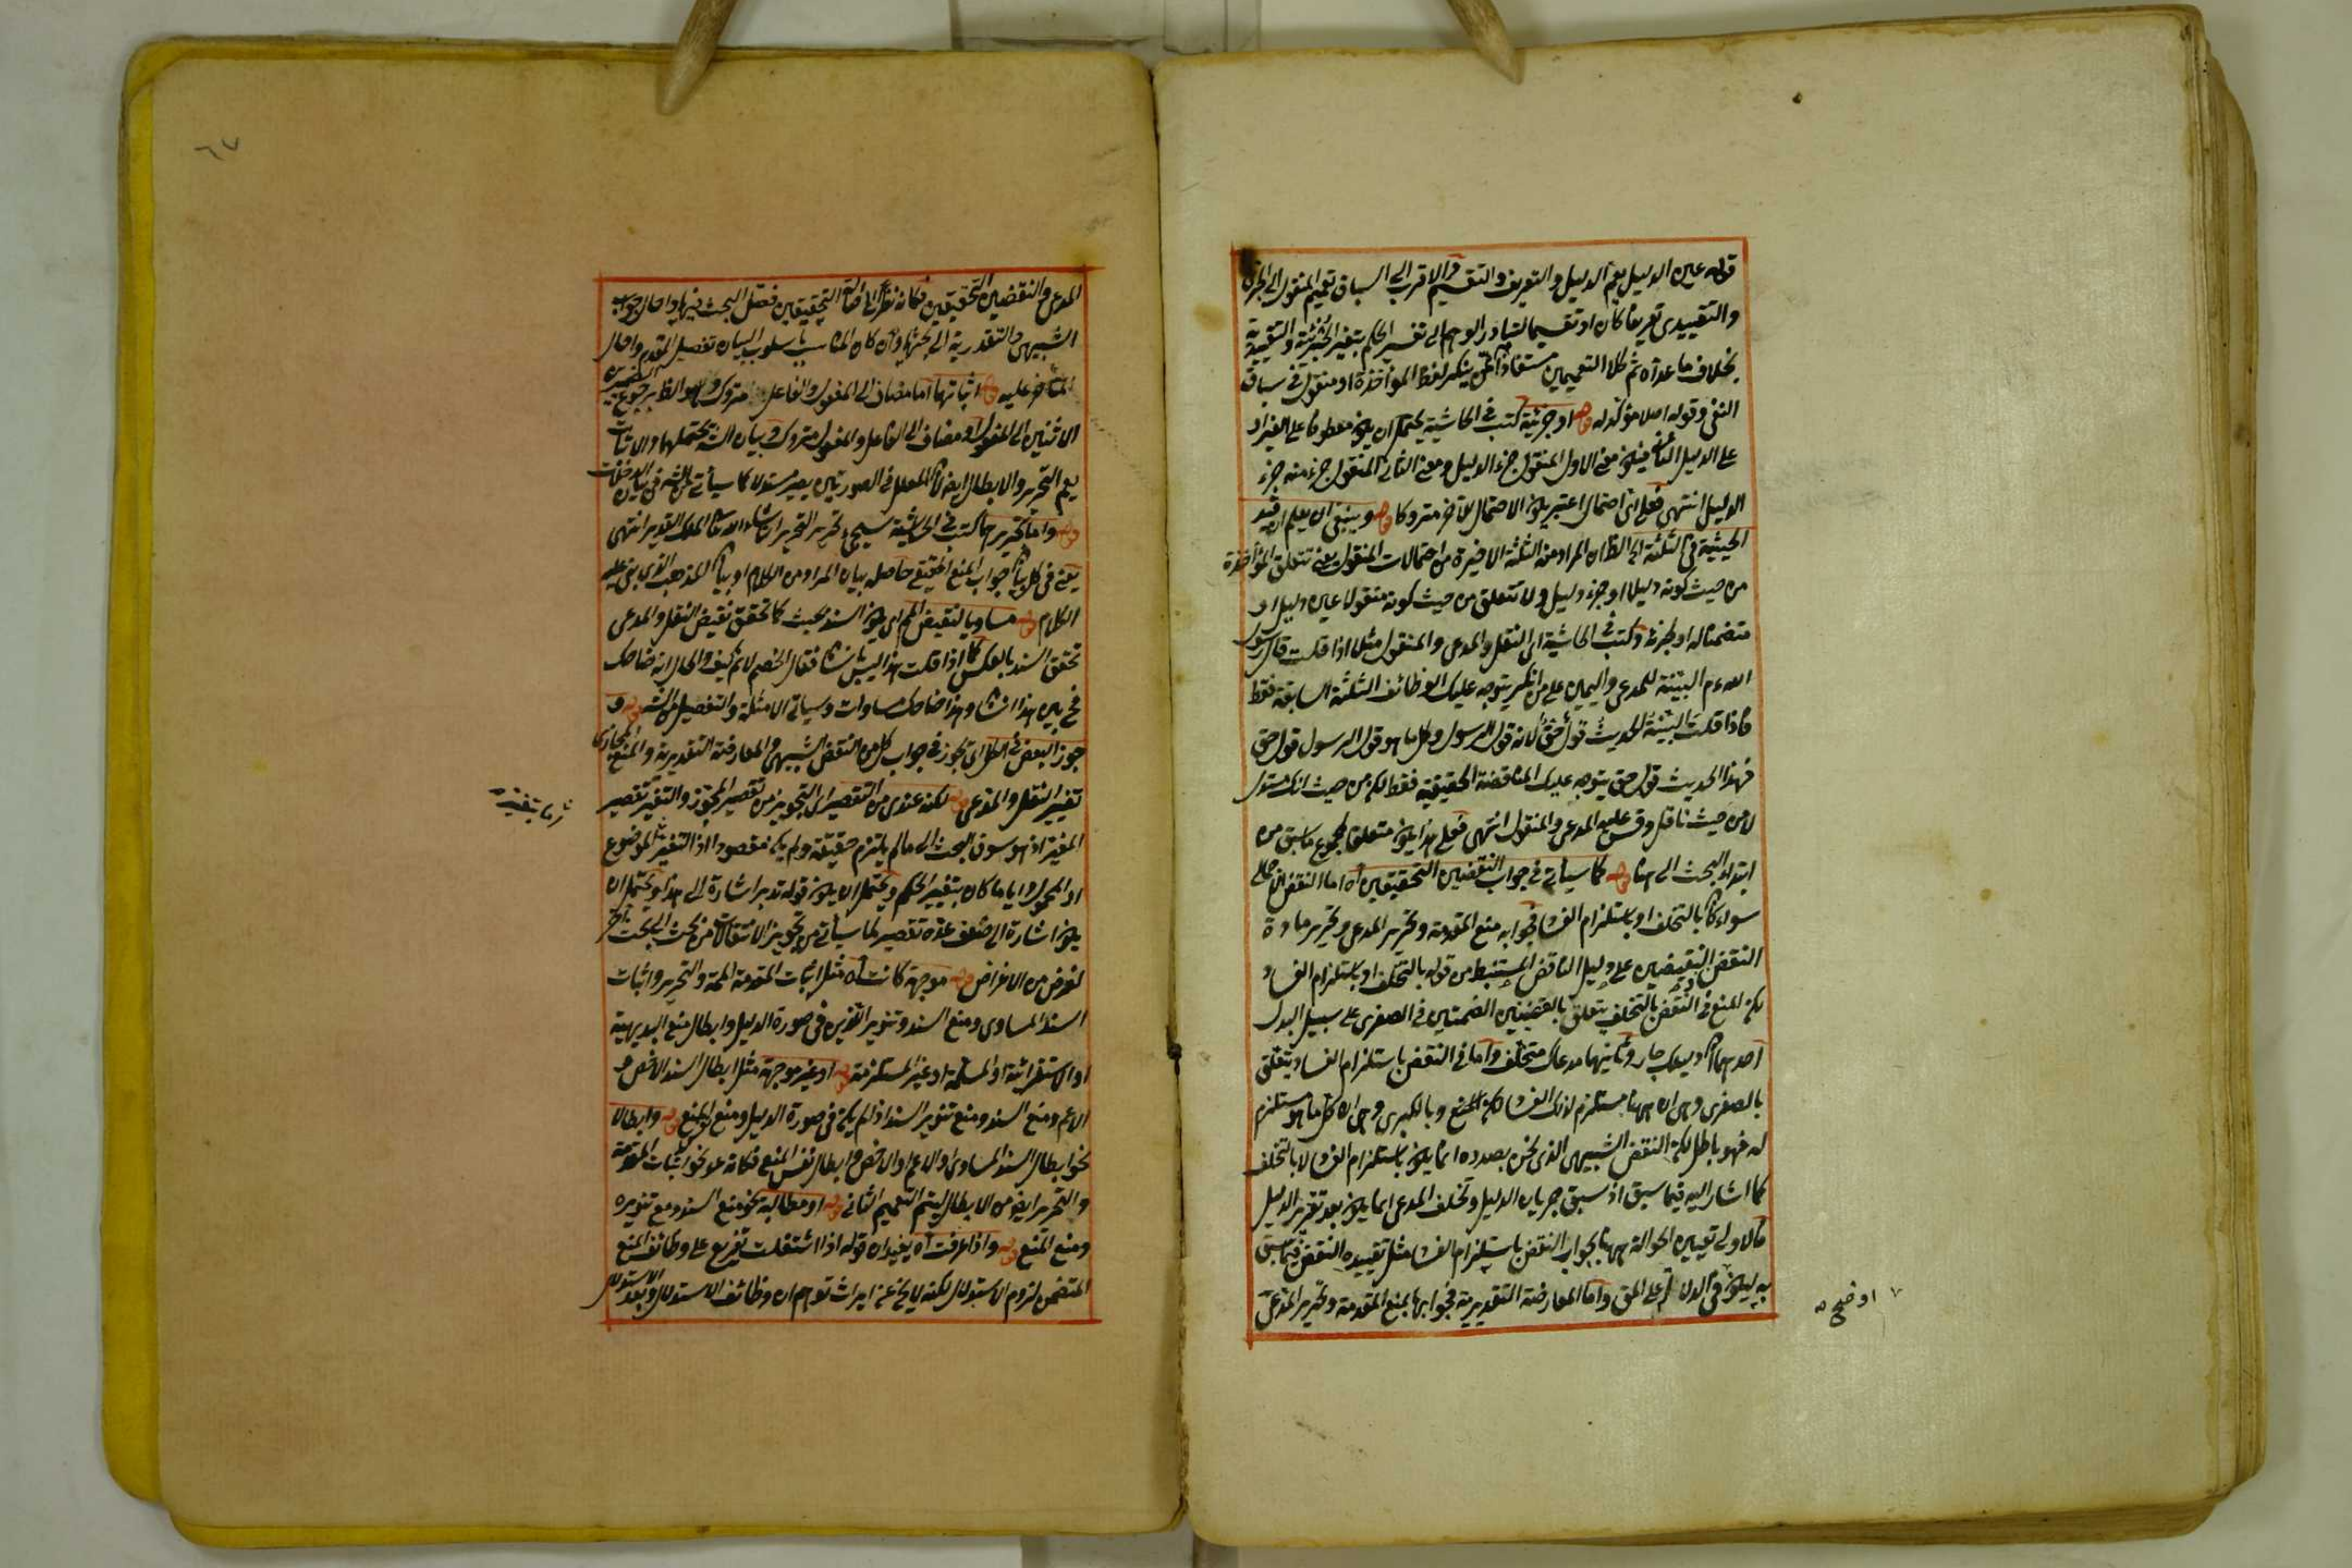 قوله عين الدليل يعم الدليل والتعريف والتقسيم والاقرب الى السباق تعميم المنقول الى الجزئى
والتقييدى تعريفا كان او تقسيما لتبادر الوهم الى تفسير الحكم بتغير الخبرية والتقييدية
بخلاف ما عداه ثم كلا التعميمين مستفاد من تنكير لفظ المؤاخذة او منقول فى سياق
النفى وقوله اصلا مؤكد له قوله او جزئية كتب فى الحاشية يحتمل ان يكون معطوفا على
على الدليل فيكون معنى الاول المنقول جزء الدليل ومعنى الثانى المنقول جزء منه جزء
الدليل انتهى فعلى اى احتمال اعتبر يكون الاحتمال الآخر متروكا قوله وينبغى ان يعلم ان قيد
الحيثية فى الثلثة الى الظ ان المراد منه الثلثة الاخيرة من احتمالات المنقول يعنى تتعلق المؤاخذة
من حيث كونه دليلا او جزء دليل ولا تتعلق من حيث كونه منقولا عين دليل او
متضمنا له او لجزئه وكتب فى الحاشية اى النقل والمدعى والمنقول مثلا اذا قلت قال رسول
الله عم البينة للمدعى واليمين على من انكر يتوجه عليك الوظائف الثلثة السابقة فقط
فاذا قلت البينة الحديث قول حق لانه قول الرسول وكل ما هو قول الرسول قول حق
فهذا الحديث قول حق يتوجه عليك المناقضة الحقيقية فقط لكن من حيث انك مستدل
لا من حيث ناقل وقس عليه المدعى والمنقول انتهى فعلى هذا يكون متعلقا بمجموع ما سبق من
ابتداء البحث الى هنا قوله كما سيأتى فى جواب النقضين التحقيقيين اه اما النقض الاجمالى
سواء كان بالتخلف او باستلزام الفساد فجوابه منع المقدمة وتحرير المدعى وتحرير مادة
النقض النقيضين على دليل الناقض المستنبط من قوله بالتخلف او باستلزام الفساد
لكن المنع فى النقض بالتخلف يتعلق بالقضيتين الضمنيتين فى الصغرى على سبيل البدل
احدهما ان دليلك جار وثانيهما مدعاك متخلف واما فى النقض باستلزام الفساد يتعلق
بالصغرى وهى ان ههنا مستلزم لذلك الفساد لكن المنع وبالكبرى وهى ان كل ما هو مستلزم
له فهو باطل لكن النقض الشبيهى الذى نحن بصدده انما يكون باستلزام الفساد لا بالتخلف
كما اشار اليه فيما سبق اذ سبق جريان الدليل وتخلف المدعى انما يكون بعد تقرير الدليل
فالاولى تعيين الحوالة ههنا بجواب النقض باستلزام الفساد مثل تقييده النقض فيما سبق
به ليكون فى الدلالة على المق واما المعارضة التقديرية فجوابها بمنع المقدمة وتحرير المدعى
اوضح
٦٧
المدعى والنقضين التحقيقيين فكانه نظر الى اصالة التحقيقيين فصل البحث فيها واحال جواب
الشبيهى والتقديرية الى بحثها وان كان المناسب باسلوب البيان تفصيل المقدم واحال
المتأخر عليه قوله اثباتها اما مضاف الى المفعول والفاعل متروك وهو الظ برجوع الضمير
الاثنين الى المفعول او مضاف الى الفاعل والمفعول متروك وبيان الش يحتملهما والاثبات
يعم التحرير والابطال ايضا لان المعلل فى الصورتين يصير مستدلا كما سيأتى من الش فى بيان
قوله واما تحريرها كتب فى الحاشية سيجئ تحرير التحرير ان شاء الله الملك القدير انتهى
يعنى فى كل بيان جواب المنع الحقيقى حاصله بيان المراد من الكلام او بيان المذهب الذى بنى عليه
الكلام قوله مساويا لنقيض الم اى يكون السند بحيث كلما تحقق نقيض النقل والمدعى
تحقق السند بالعكس كما اذا قلت هذا ليس بانسان فقال الخصم لا نم كيف والحال انه ضاحك
فح بين هذا انسان وهذا ضاحك مساوات وسيأتى الامثلة والتفصيل من الش قوله و
جوز البعض فى الكل اى تجوز فى جواب كل من النقض الشبيهى والمعارضة التقديرية والمنع المجازى
تغيير النقل والمدعى قوله لكنه عندى من التقصير اى التجويز من تقصير المجوز والتغيير تقصير
المغير اذ هو سوق البحث الى ما لم يلتزم حقيقة ولم يكن مقصودا اذ التغيير للموضوع
او المحمول واياما كان يتغير الحكم ويحتمل ان يكون قوله تدبر اشارة الى هذا ويحتمل ان
يكون اشارة الى ضعف عده تقصيرا لما سيأتى من تجويز الانتقالات من بحث الى بحث آخر
لغرض من الاغراض قوله موجهة كانت اه مثل اثبات المقدمة الممنوعة والتحرير واثبات
السند المساوى ومنع السند وتنوير التنوير فى صورة الدليل وابطال منع البديهية
او الاستقرائية او المسلمة او غير المستلزمة قوله او غير موجهة مثل ابطال السند الاخص و
الاعم ومنع السند ومنع تنوير السند اذا لم يكن فى صورة الدليل ومنع المنع قوله وابطالا
نحو ابطال السند المساوى او الاعم او الاخص وابطال نفس المنع فكانه عد نحو اثبات المقدمة
والتحرير ايضا من الابطال ليتم التعميم الثانى قوله او مطالبة نحو منع السند ومنع تنويره
ومنع المنع قوله واذا عرفت اه يفيد ان قوله اذا اشتغلت تفريع على وظائف المنع
المتضمن لزوم الاستدلال لكنه لا يخ عن ايراث توهم ان وظائف الاستدلال وبعد الاستدلال